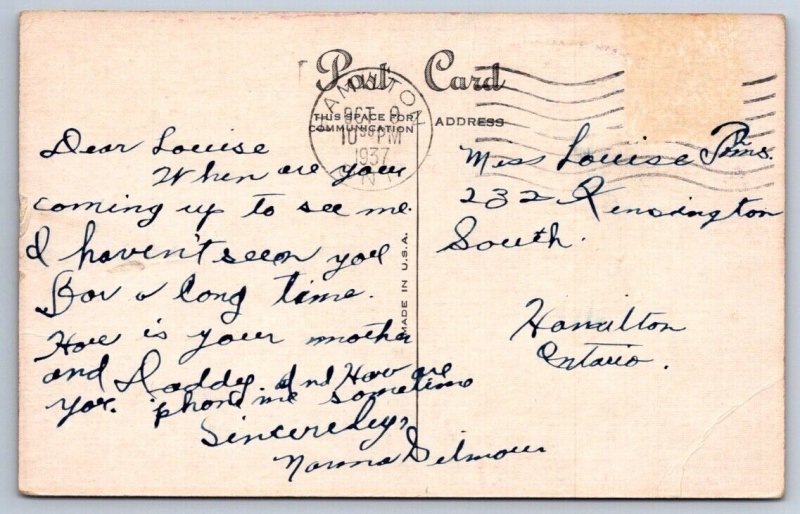 Post Card
THIS SPACE FOR
COMMUNICATION
ADDRESS
HAMILTON
OCT 9
10 PM
1937
ONT
MADE IN U.S.A.
Dear Louise
When are you
coming up to see me
I haven't seen you
for a long time.
How is your mother
and Daddy. And How are
you. 'phone me sometime
Sincereley,
Norma Gilmour
Miss Louise
232 Kensington
South.
Hamilton
Ontario.